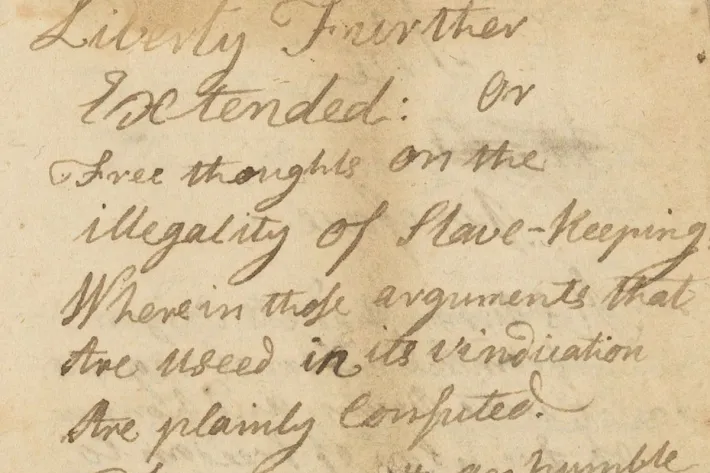 Liberty Further
Extended: Or
Free thoughts on the
illegality of Slave-keeping
Wherein those arguments that
Are useed in its vindication
Are plainly Confuted.
an humble